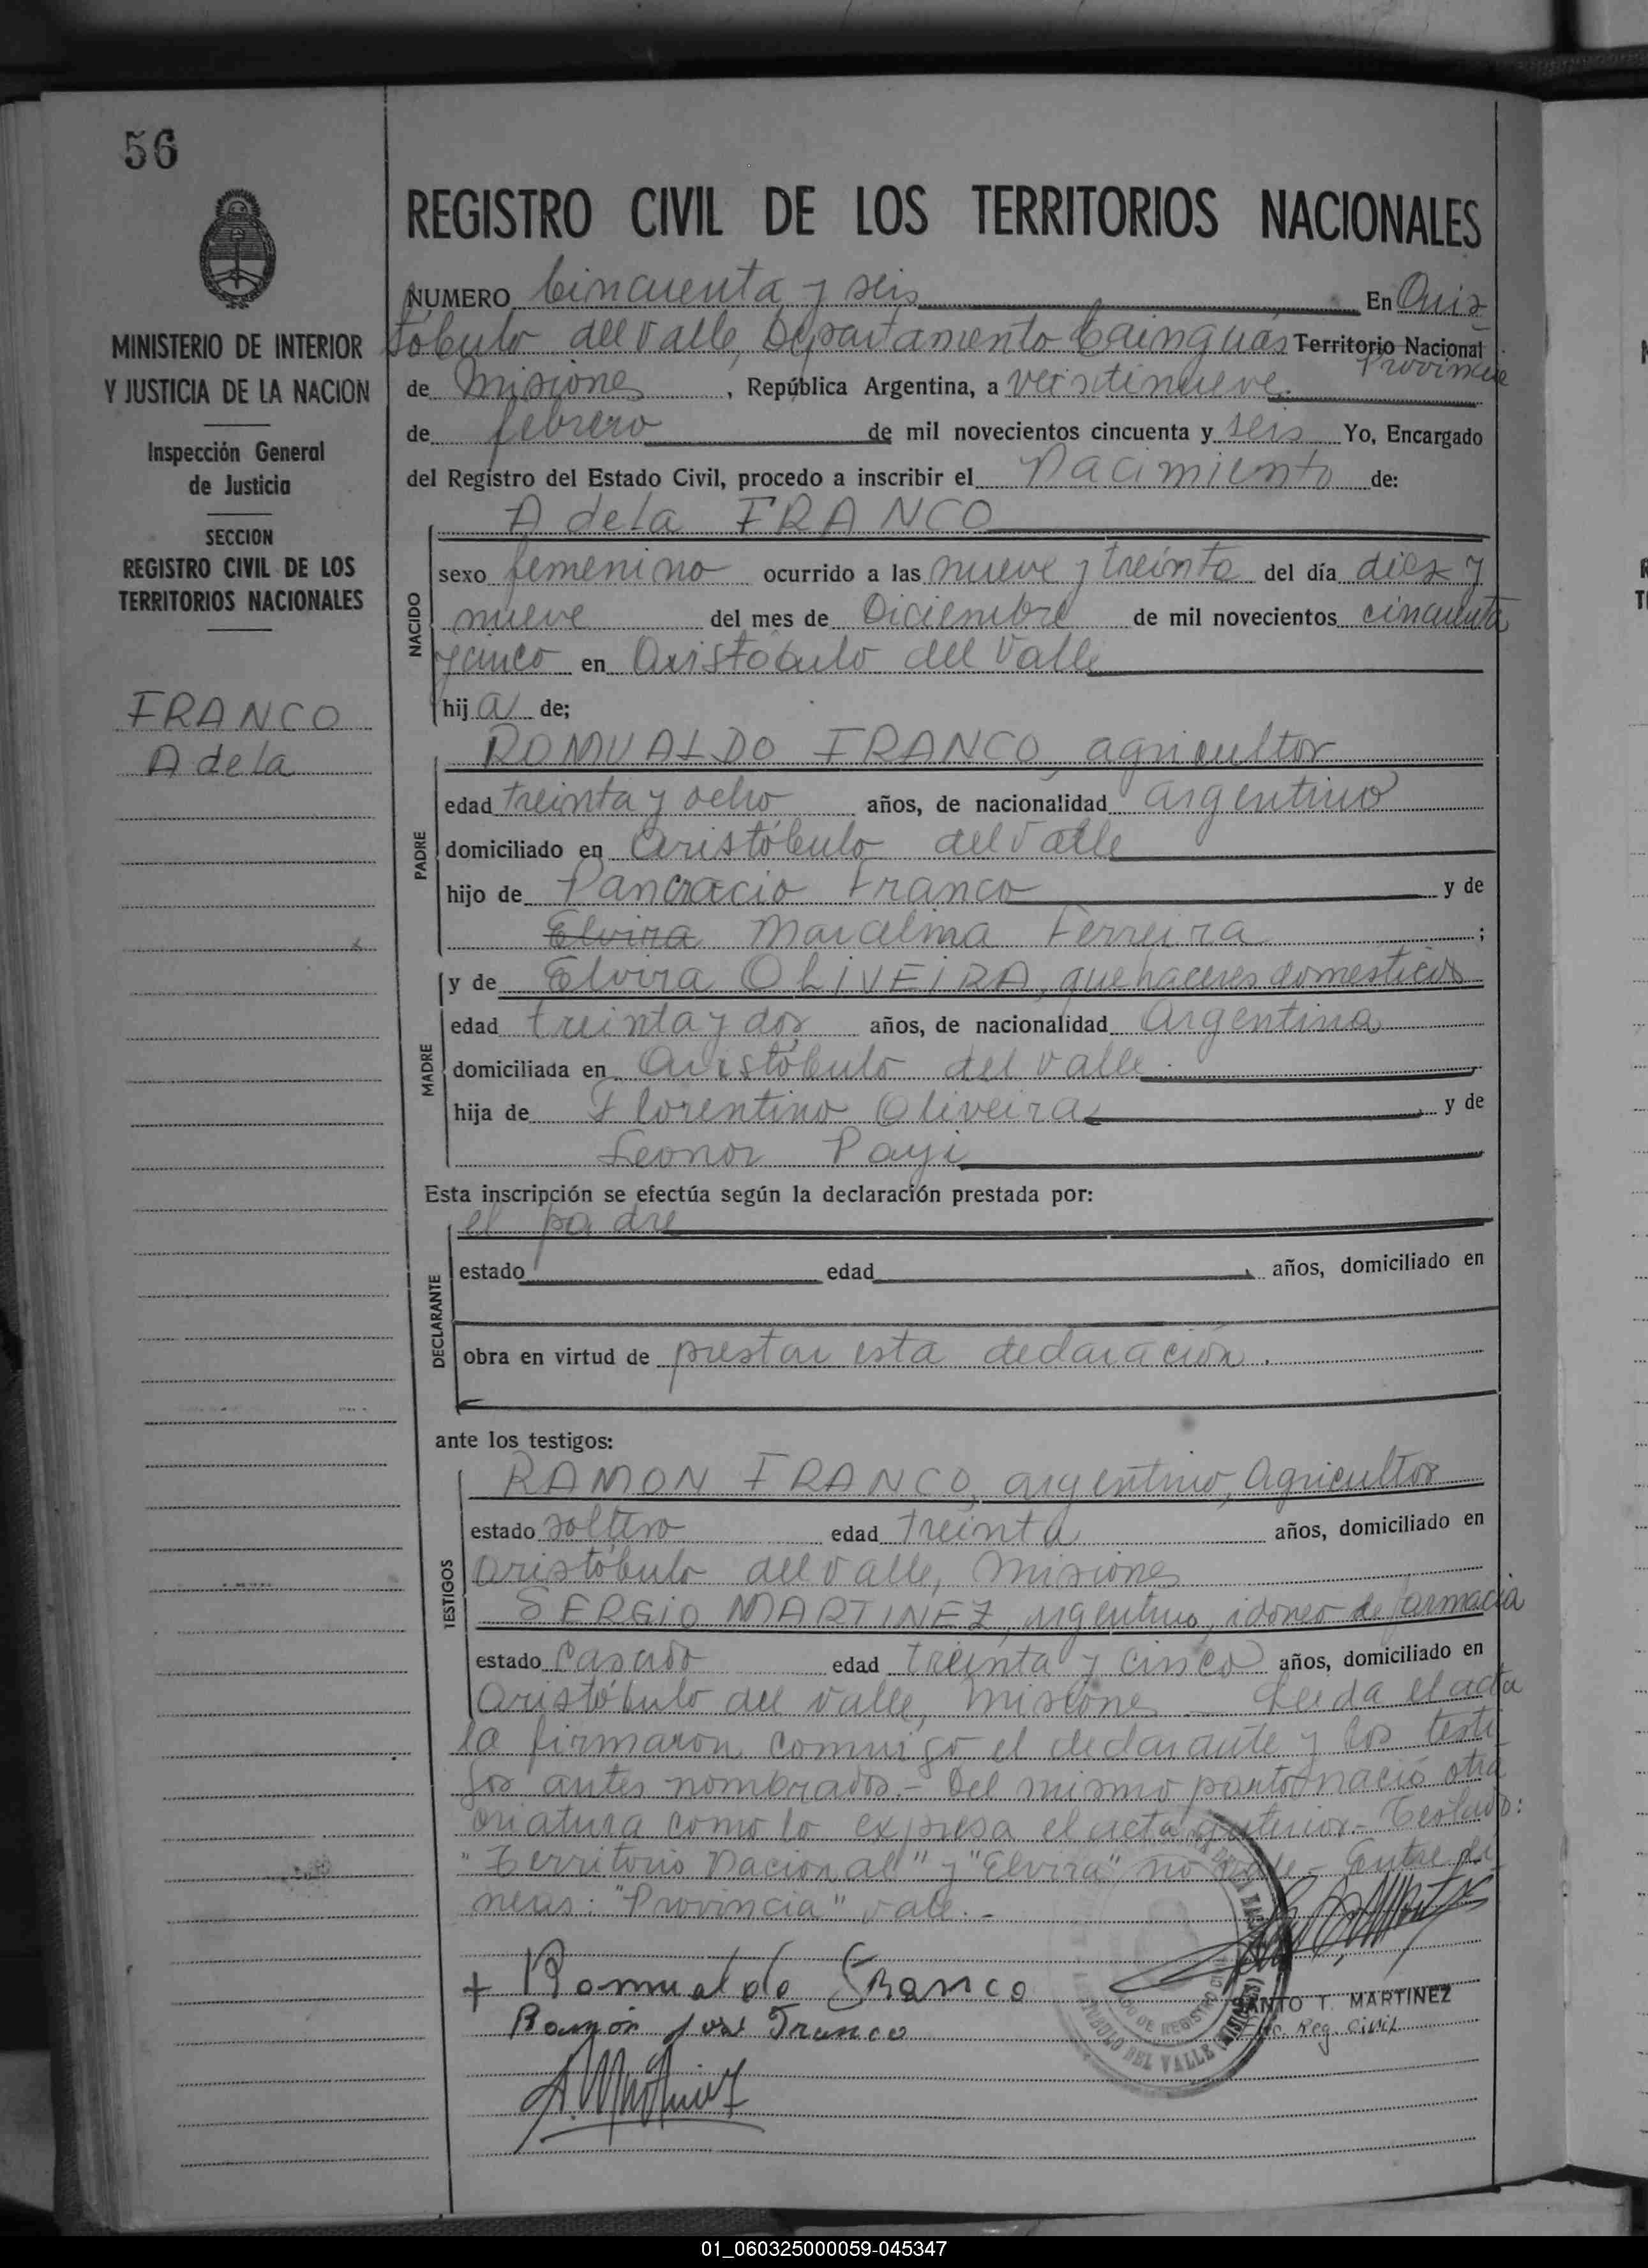 56
MINISTERIO DE INTERIOR
Y JUSTICIA DE LA NACION
Inspección General
de Justicia
SECCION
REGISTRO CIVIL DE LOS
TERRITORIOS NACIONALES
FRANCO
Adela
REGISTRO CIVIL DE LOS TERRITORIOS NACIONALES
NUMERO Cincuenta y seis En Aris
tóbulo del Valle, Departamento Cainguás Territorio Nacional
Provincia
de Misiones, República Argentina, a veintinueve
de febrero de mil novecientos cincuenta y seis Yo, Encargado
del Registro del Estado Civil, procedo a inscribir el Nacimiento de:
NACIDO
Adela FRANCO
sexo femenino ocurrido a las nueve y treinta del día diez y
nueve del mes de Diciembre de mil novecientos cincuenta
y cinco en Aristóbulo del Valle
hija de;
PADRE
ROMUALDO FRANCO, agricultor
edad treinta y ocho años, de nacionalidad argentino
domiciliado en Aristóbulo del Valle
hijo de Pancracio Franco y de
Elvira Marcelina Ferreira;
MADRE
y de Elvira OLIVEIRA, quehaceres domésticos
edad treinta y dos años, de nacionalidad Argentina
domiciliada en Aristóbulo del Valle
hija de Florentino Oliveira y de
Leonor Payi
Esta inscripción se efectúa según la declaración prestada por:
DECLARANTE
el padre
estado edad años, domiciliado en
obra en virtud de prestar esta declaración.
ante los testigos:
TESTIGOS
RAMON FRANCO, argentino, Agricultor
estado soltero edad treinta años, domiciliado en
Aristóbulo del Valle, Misiones
SERGIO MARTINEZ, argentino, idóneo de farmacia
estado Casado edad treinta y cinco años, domiciliado en
Aristóbulo del Valle, Misiones _ Leida el acta
la firmaron conmigo el declarante y los testi
gos antes nombrados.- Del mismo parto nació otra
criatura como lo expresa el acta anterior.- Testado:
"Territorio Nacional" y "Elvira" no vale - Entre lí
neas: "Provincia" vale.-
+ Romualdo Franco
SANTO T. MARTINEZ
Enc. Reg. Civil
Ramón José Franco
01_060325000059-045347